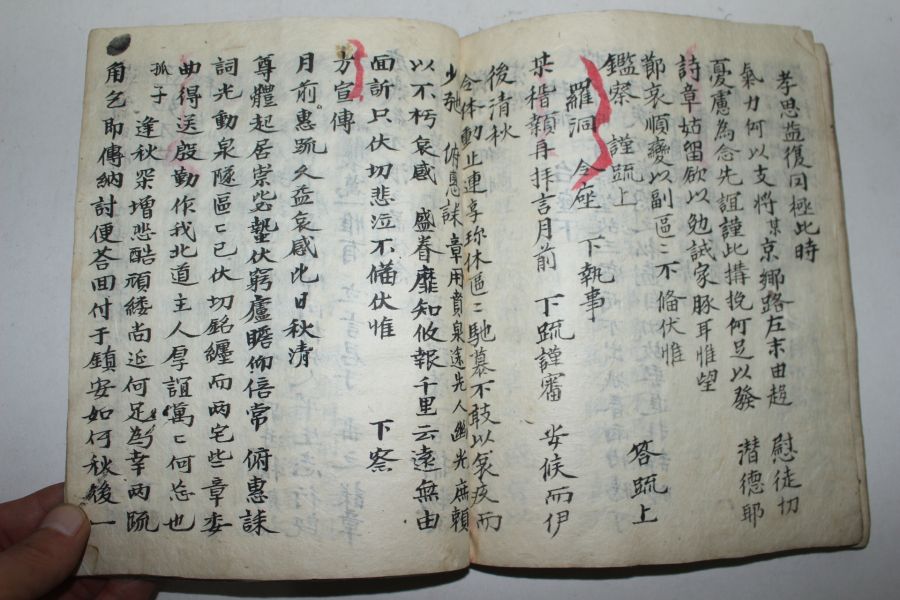 孝思益復罔極此時
氣力何以支將某京鄉路左末由趨 慰徒切
憂慮為念先誼謹此搆挽何足以發 潛德耶
詩章姑留欲以勉誠家豚耳惟望
節哀順變以副區〻不備伏惟
鑑察 謹疏上 答疏上
羅洞 令座 下執事
某稽顙再拜言月前 下疏謹審 安候而伊
後清秋
令体動止連享珎休區〻馳慕不敢以衰疚而
少弛 俯惠誄章用賁泉遠先人幽光庶賴
以不朽哀感 盛眷靡知攸報千里云遠無由
面訴只伏切悲泣不備伏惟 下察
方宣傳
月前惠疏久益哀感比日秋清
尊體起居崇毖蟄伏窮廬瞻仰倍常 俯惠誄
詞光動泉隧區〻已伏切銘纏而兩宅些章委
曲得送殷勤作我北道主人厚誼萬〻何忘也
孤子 逢秋罙增悲酷頑縷尚延何足為幸兩疏
角乞即傳納討便荅回付于鎮安如何秋後一